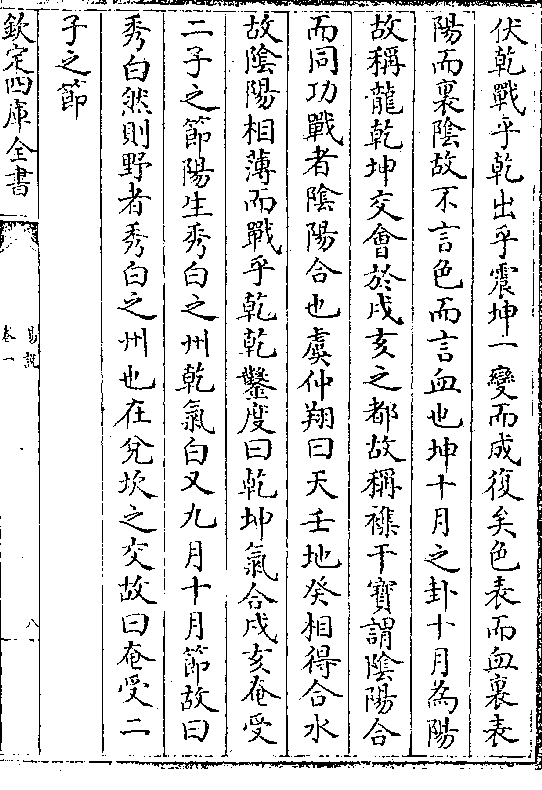 伏乾戰乎乾出乎震坤一變而成復矣色表而血裏表
陽而裏陰故不言色而言血也坤十月之卦十月為陽
故稱龍乾坤交會於戌亥之都故稱襍干寶謂陰陽合
而同功戰者陰陽合也虞仲翔曰天壬地癸相得合水
故陰陽相薄而戰乎乾乾鑿度曰乾坤氣合戌亥奄受
二子之節陽生秀白之州乾氣白又九月十月節故曰
秀白然則野者秀白之州也在兌坎之交故曰奄受二
子之節
欽定四庫全書
易說
卷一
八